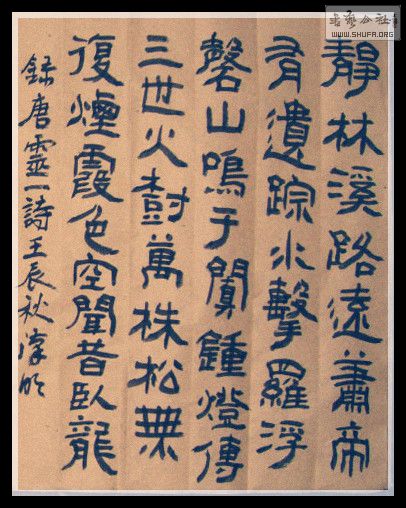 靜林溪路遠蕭帝
有遺踪水擊羅浮
磬山鳴于闐鍾燈傳
三世火樹萬株松無
復煙霞色空聞昔臥龍
錄唐靈一詩壬辰秋
书艺公社
WWW.SHUFA.ORG